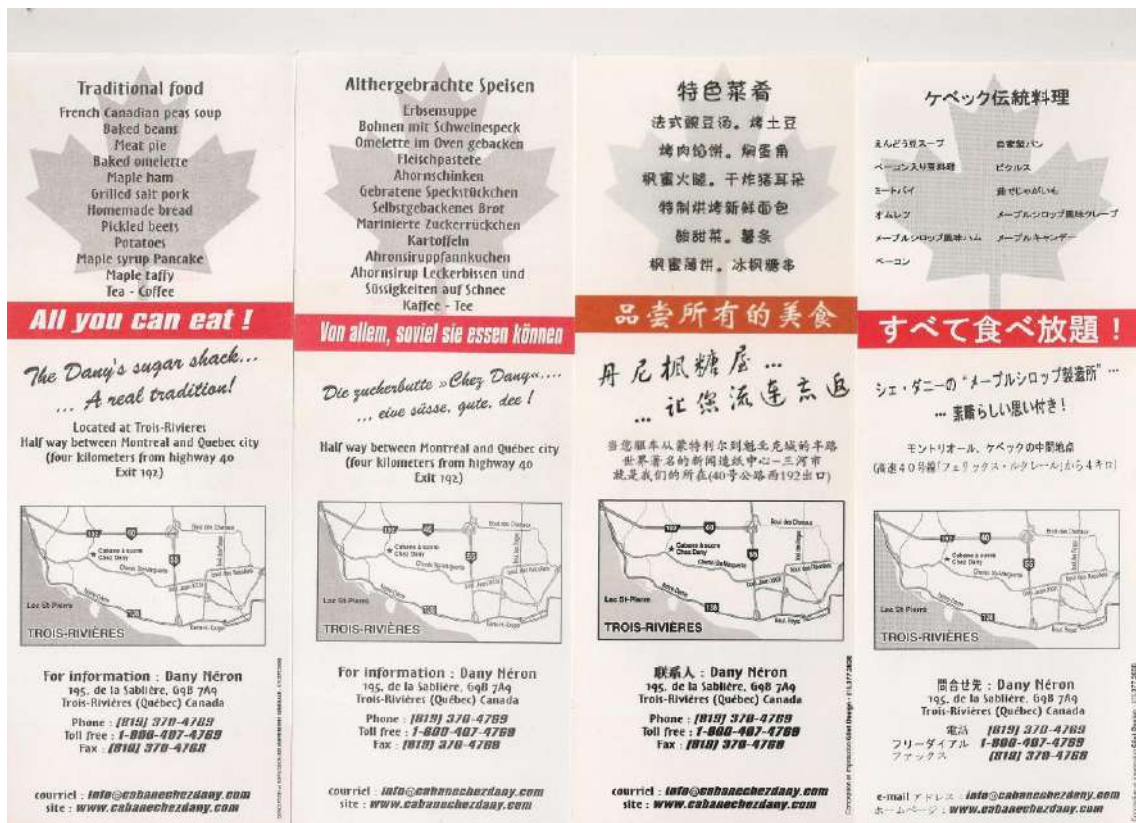 Traditional food
French Canadian peas soup
Baked beans
Meat pie
Baked omelette
Maple ham
Grilled salt pork
Homemade bread
Pickled beets
Potatoes
Maple syrup Pancake
Maple taffy
Tea - Coffee
All you can eat !
The Dany's sugar shack...
... A real tradition!
Located at Trois-Rivieres
Half way between Montreal and Quebec city
(four kilometers from highway 40
Exit 192)
Cabane à sucre
Chez Dany
40
55
138
Lac St-Pierre
TROIS-RIVIÈRES
For information : Dany Néron
195, de la Sablière, G9B 7A9
Trois-Rivières (Québec) Canada
Phone : (819) 370-4769
Toll free : 1-800-407-4769
Fax : (819) 370-4768
courriel : info@cabanechezdany.com
site : www.cabanechezdany.com
Althergebrachte Speisen
Erbsensuppe
Bohnen mit Schweinespeck
Omelette im Oven gebacken
Fleischpastete
Ahornschinken
Gebratene Speckstückchen
Selbstgebackenes Brot
Marinierte Zuckerrückchen
Kartoffeln
Ahronsiruppfannkuchen
Ahornsirup Leckerbissen und
Süssigkeiten auf Schnee
Kaffee - Tee
Von allem, soviel sie essen können
Die zuckerbutte »Chez Dany«....
... eive süsse, gute, dee !
Half way between Montréal and Québec city
(four kilometers from highway 40
Exit 192)
Cabane à sucre
Chez Dany
40
55
138
Lac St-Pierre
TROIS-RIVIÈRES
For information : Dany Néron
195, de la Sablière, G9B 7A9
Trois-Rivières (Québec) Canada
Phone : (819) 370-4769
Toll free : 1-800-407-4769
Fax : (819) 370-4768
courriel : info@cabanechezdany.com
site : www.cabanechezdany.com
特色菜肴
法式豌豆汤。烤土豆
烤肉馅饼。焗蛋角
枫蜜火腿。干炸猪耳朵
特制烘烤新鲜面包
酸甜菜。薯条
枫蜜薄饼。冰枫糖串
品尝所有的美食
丹尼枫糖屋...
... 让您流连忘返
当您驱车从蒙特利尔到魁北克城的半路
世界著名的新闻造纸中心-三河市
就是我们的所在(40号公路西192出口)
Cabane à sucre
Chez Dany
40
55
138
Lac St-Pierre
TROIS-RIVIÈRES
联系人 : Dany Néron
195, de la Sablière, G9B 7A9
Trois-Rivières (Québec) Canada
Phone : (819) 370-4769
Toll free : 1-800-407-4769
Fax : (819) 370-4768
courriel : info@cabanechezdany.com
site : www.cabanechezdany.com
ケベック伝統料理
えんどう豆スープ 自家製パン
ベーコン入り豆料理 ピクルス
ミートパイ 茹でじゃがいも
オムレツ メープルシロップ風味クレープ
メープルシロップ風味ハム メープルキャンデー
ベーコン
すべて食べ放題！
シェ・ダニーの“メープルシロップ製造所”...
... 素晴らしい思い付き！
モントリオール、ケベックの中間地点
(高速40号線「フェリックス・ルクレール」から4キロ)
Cabane à sucre
Chez Dany
40
55
138
Lac St-Pierre
TROIS-RIVIÈRES
問合せ先 : Dany Néron
195, de la Sablière, G9B 7A9
Trois-Rivières (Québec) Canada
電話 (819) 370-4769
フリーダイアル 1-800-407-4769
ファックス (819) 370-4768
e-mail アドレス : info@cabanechezdany.com
ホームページ : www.cabanechezdany.com